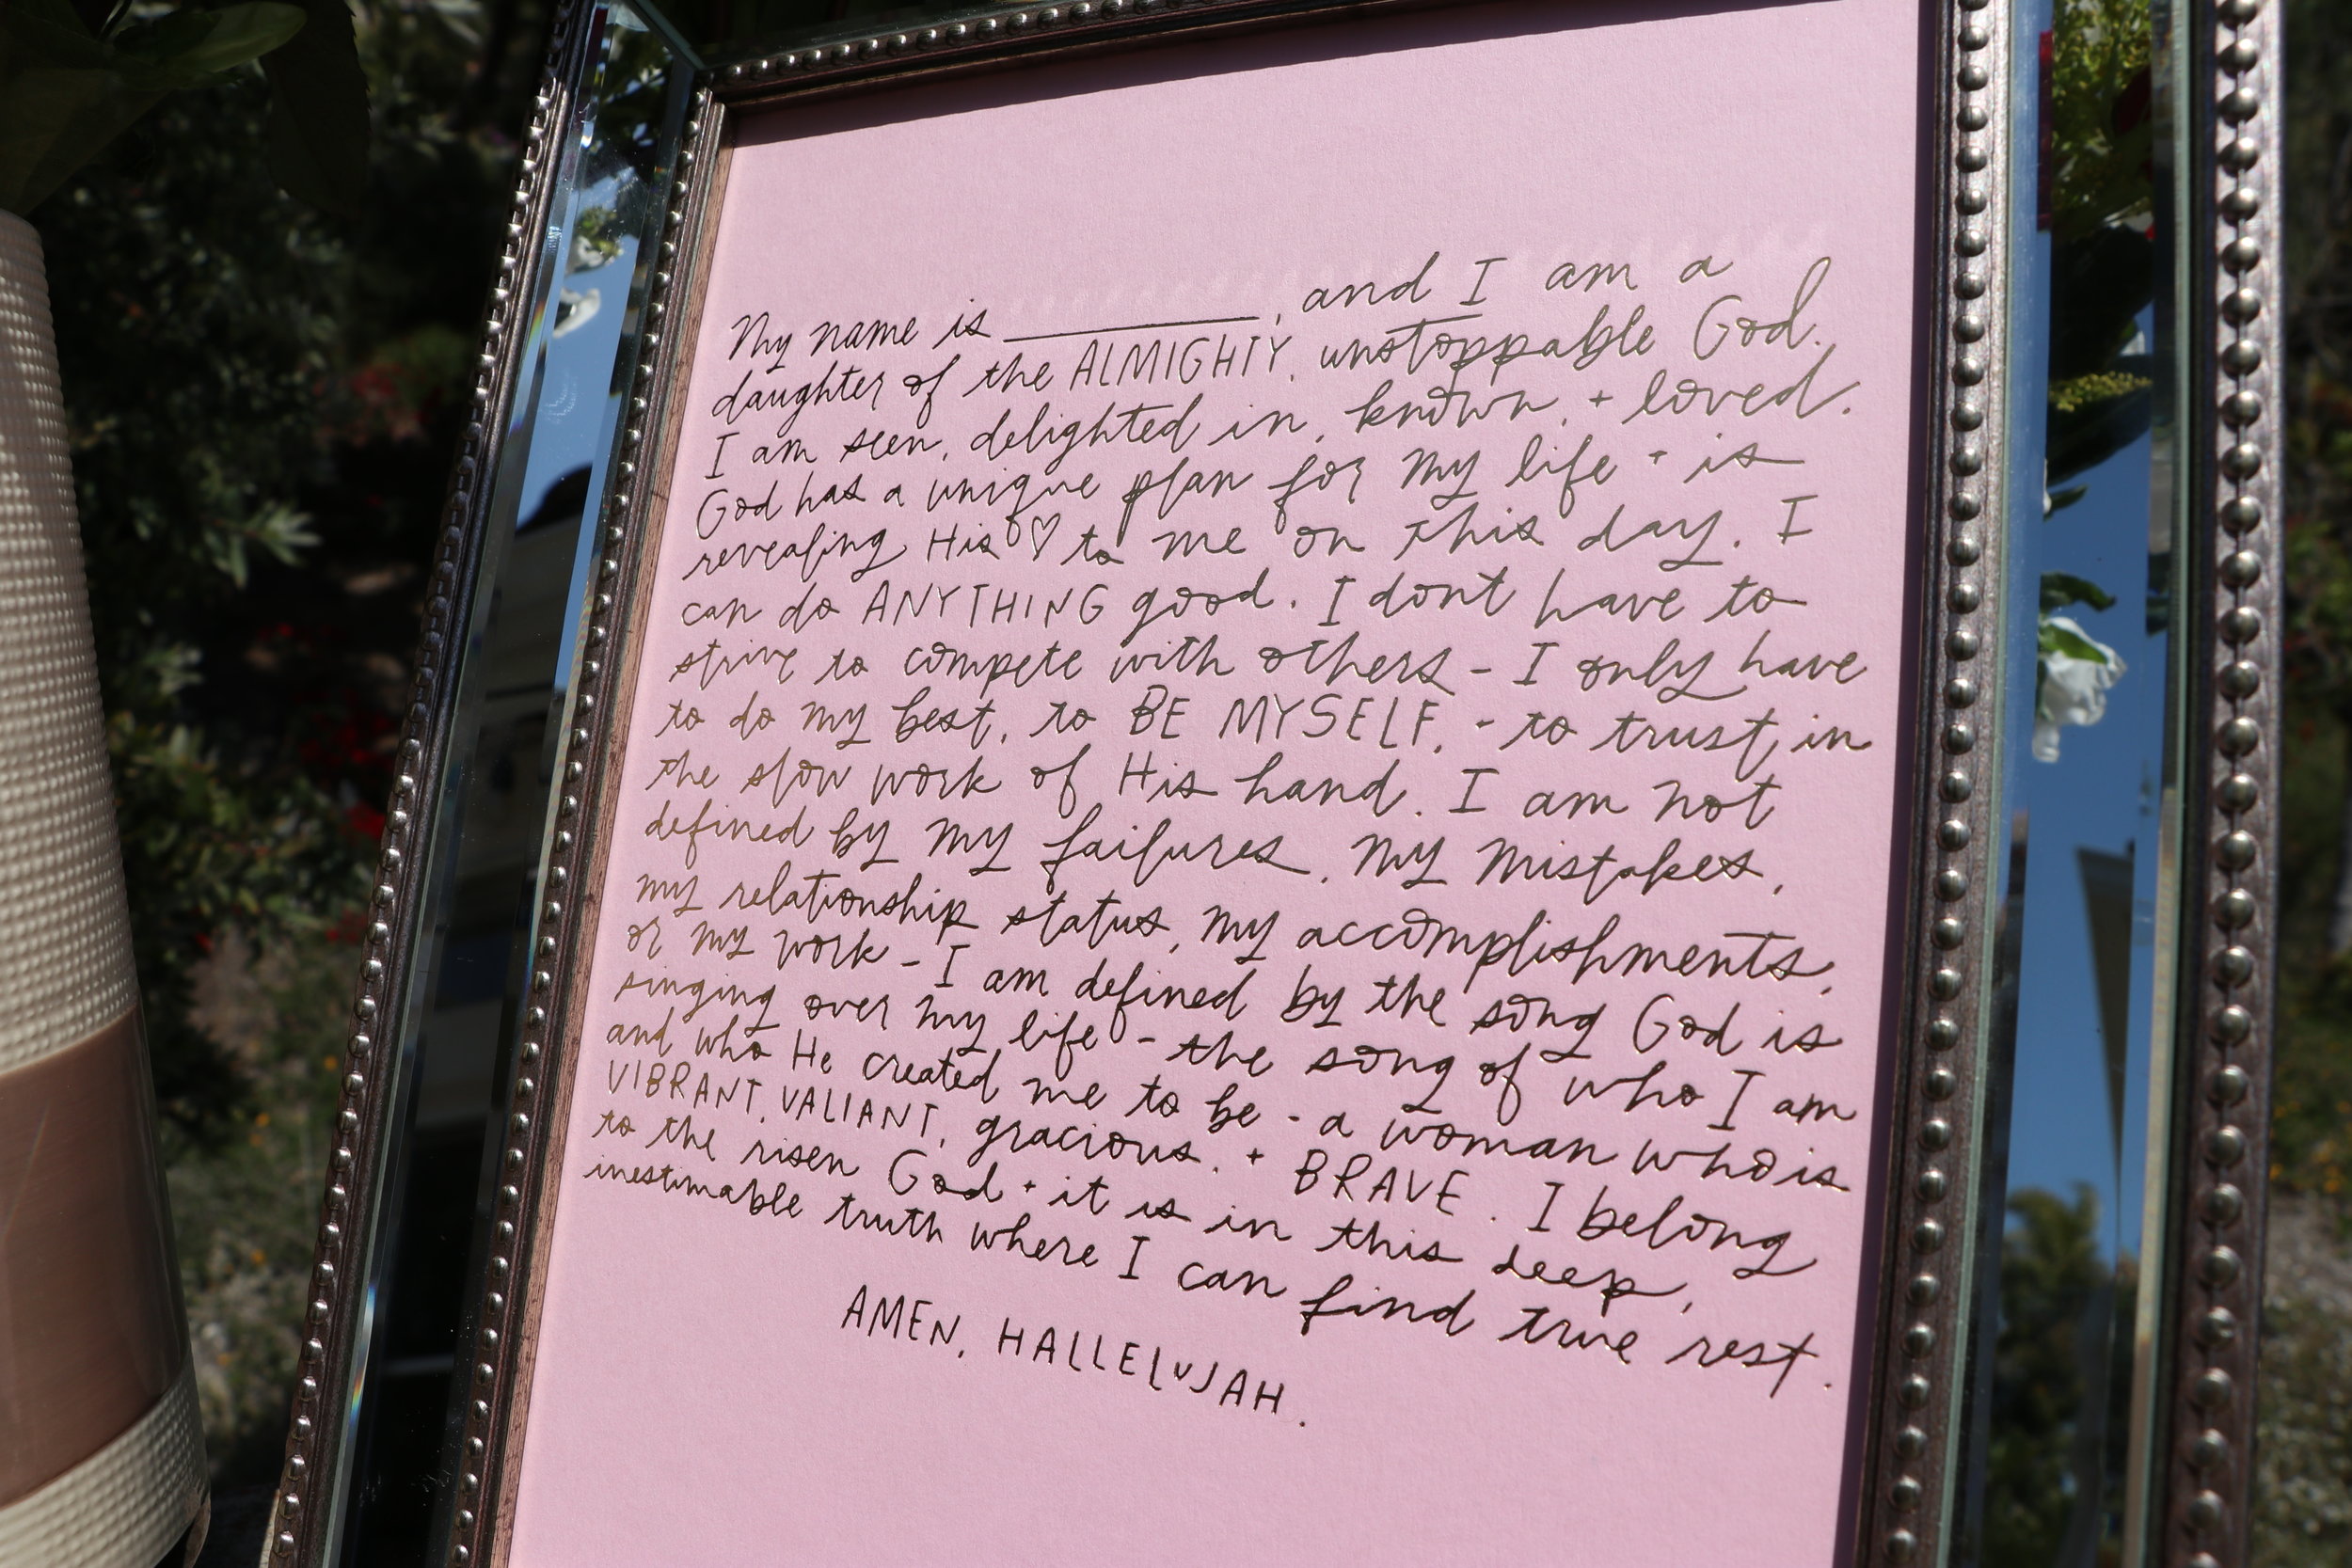 My name is __________, and I am a
daughter of the ALMIGHTY, unstoppable God.
I am seen, delighted in, known, + loved.
God has a unique plan for my life + is
revealing His ♡ to me on this day. I
can do ANYTHING good. I dont have to
strive to compete with others - I only have
to do my best, to BE MYSELF, + to trust in
the slow work of His hand. I am not
defined by my failures, my mistakes,
my relationship status, my accomplishments,
or my work - I am defined by the song God is
singing over my life - the song of who I am
and who He created me to be - a woman who is
VIBRANT, VALIANT, gracious, + BRAVE. I belong
to the risen God + it is in this deep,
inestimable truth where I can find true rest.
AMEN, HALLELUJAH.